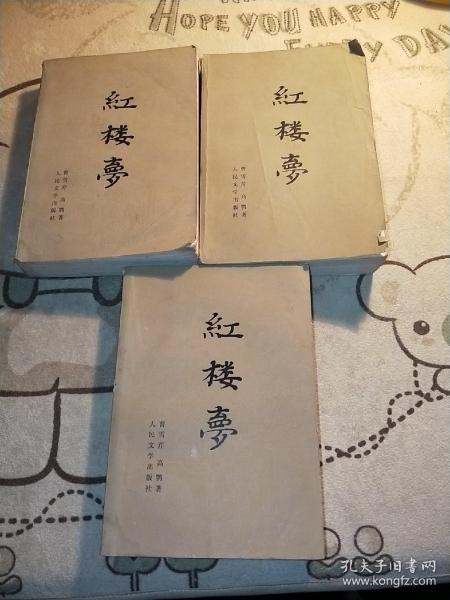 HOPE YOU HAPPY
EVERY DAY
紅楼夢
曹雪芹 高鹗著
人民文学出版社
紅楼夢
曹雪芹 高鹗著
人民文学出版社
紅楼夢
曹雪芹 高鹗著
人民文学出版社
孔夫子旧书网
www.kongfz.com